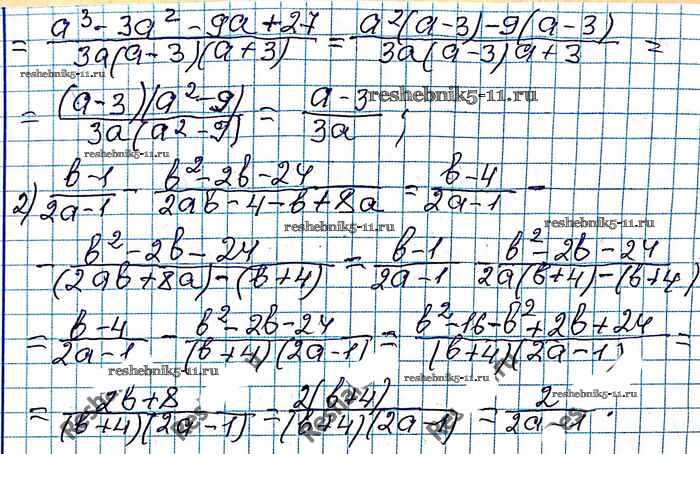 = (a³ - 3a² - 9a + 27)/(3a(a-3)(a+3)) = (a²(a-3) - 9(a-3))/(3a(a-3)a+3) =
reshebnik5-11.ru
= ((a-3)(a²-9))/(3a(a²-9)) = (a-3)/(3a) ;
reshebnik5-11.ru
reshebnik5-11.ru
2) (b-1)/(2a-1) - (b²-2b-24)/(2ab-4-b+8a) = (b-4)/(2a-1) -
reshebnik5-11.ru
reshebnik5-11.ru
- (b²-2b-24)/((2ab+8a)-(b+4)) = (b-1)/(2a-1) (b²-2b-24)/(2a(b+4)-(b+4))
= (b-4)/(2a-1) - (b²-2b-24)/((b+4)(2a-1)) = (b²-16-b²+2b+24)/((b+4)(2a-1)) =
reshebnik5-11.ru
reshebnik5-11.ru
= (2b+8)/((b+4)(2a-1)) = (2(b+4))/((b+4)(2a-1)) = 2/(2a-1) .